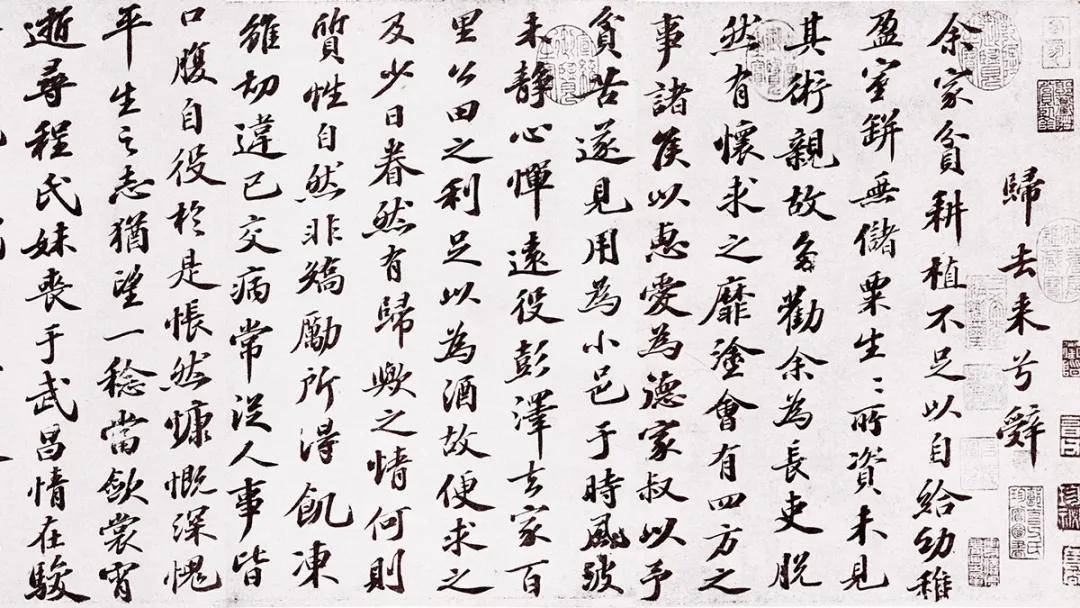 歸去来兮辭
余家貧耕植不足以自給幼稚
盈室缾無儲粟生〻所資未見
其術親故多勸余為長吏脱
然有懷求之靡塗會有四方之
事諸侯以惠愛為德家叔以予
貧苦遂見用為小邑于時風波
未靜心憚遠役彭澤去家百
里公田之利足以為酒故便求之
及少日眷然有歸歟之情何則
質性自然非矯勵所得飢凍
雖切違己交病常從人事皆
口腹自役於是悵然慷慨深愧
平生之志猶望一稔當斂裳宵
逝尋程氏妹喪于武昌情在駿